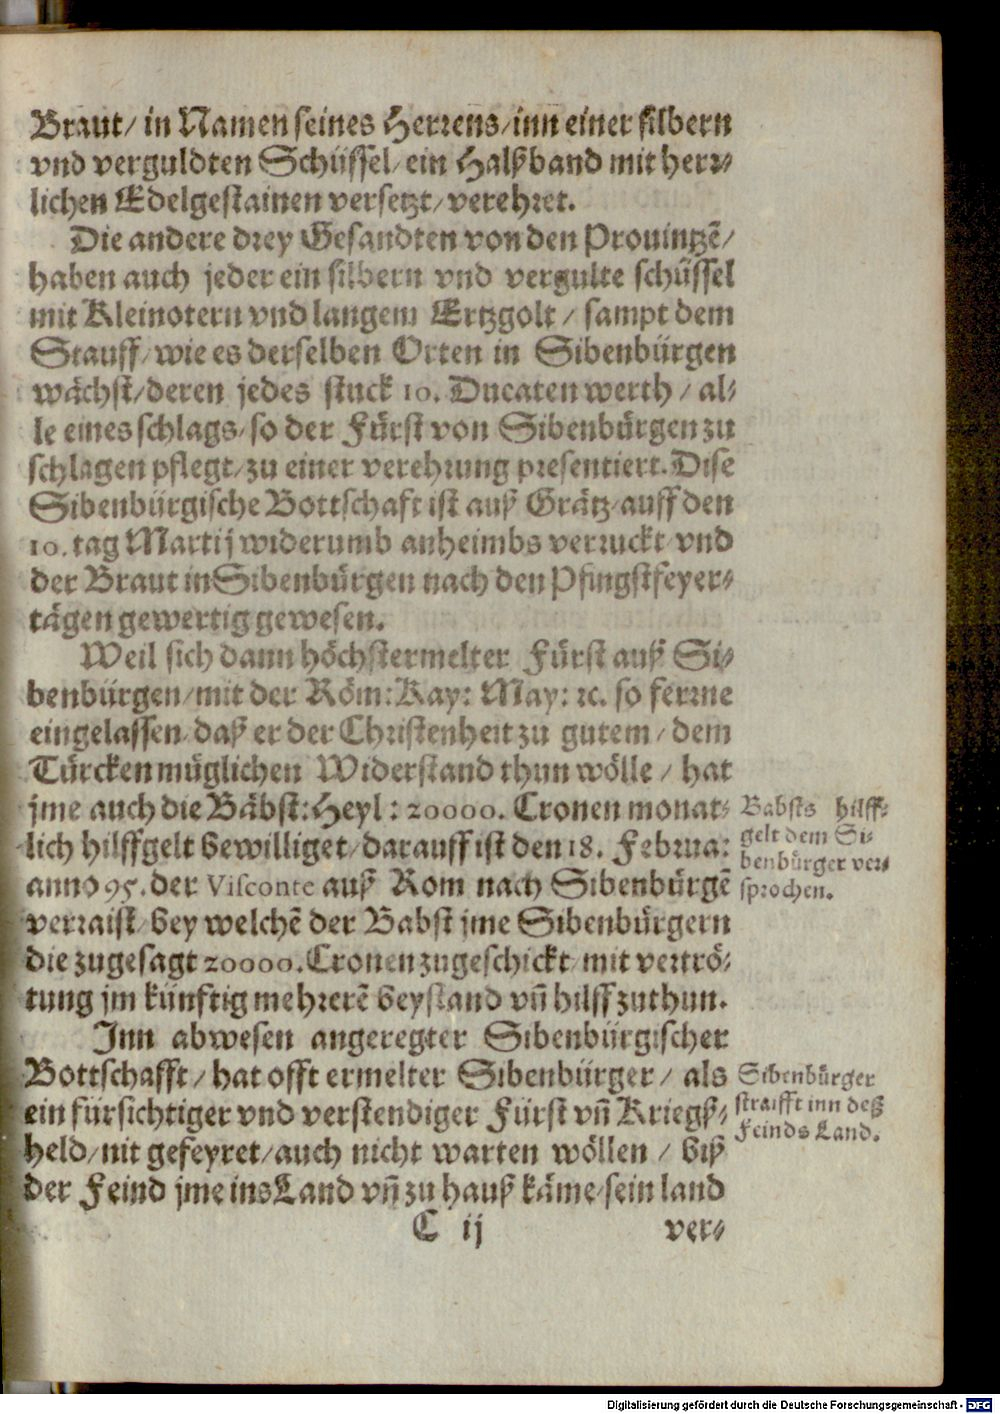 Braut/ in Namen seines Herrens/ inn einer silbern
vnd verguldten Schüssel/ ein Halßband mit herr-
lichen Edelgestainen versetzt/ verehret.
Die andere drey Gesandten von den Prouintzẽ/
haben auch jeder ein silbern vnd vergulte schüssel
mit Kleinotern vnd langem Ertzgolt / sampt dem
Stauff/ wie es derselben Orten in Sibenbürgen
wächst/ deren jedes stuck 10. Ducaten werth / al-
le eines schlags/ so der Fürst von Sibenbürgen zu
schlagen pflegt/ zu einer verehrung presentiert. Dise
Sibenbürgische Bottschaft ist auß Grätz/ auff den
10. tag Martij widerumb anheimbs verruckt/ vnd
der Braut in Sibenbürgen nach den Pfingstfeyer-
tägen gewertig gewesen.
Weil sich dann höchstermelter Fürst auß Si-
benbürgen/ mit der Röm: Kay: May: ꝛc. so ferrne
eingelassen/ daß er der Christenheit zu gutem/ dem
Türcken müglichen Widerstand thun wölle / hat
jme auch die Bäbst: Heyl: 20000. Cronen monat-
lich hilffgelt bewilliget/ darauff ist den 18. Februa:
anno 95. der Visconte auß Rom nach Sibenbürgẽ
verraist/ bey welchẽ der Babst jme Sibenbürgern
die zugesagt 20000. Cronen zugeschickt/ mit vertrö-
tung jm künftig mehrerẽ beystand vñ hilff zuthun.
Babsts hilff-
gelt dem Si-
benbürger ver-
sprochen.
Inn abwesen angeregter Sibenbürgischer
Bottschafft / hat offt ermelter Sibenbürger / als
ein fürsichtiger vnd verstendiger Fürst vñ Kriegß-
held/ nit gefeyret/ auch nicht warten wöllen / biß
der Feind jme ins Land vñ zu hauß käme/ sein land
Sibenbürger
straifft inn deß
Feinds Land.
C ij
ver-
Digitalisierung gefördert durch die Deutsche Forschungsgemeinschaft - DFG